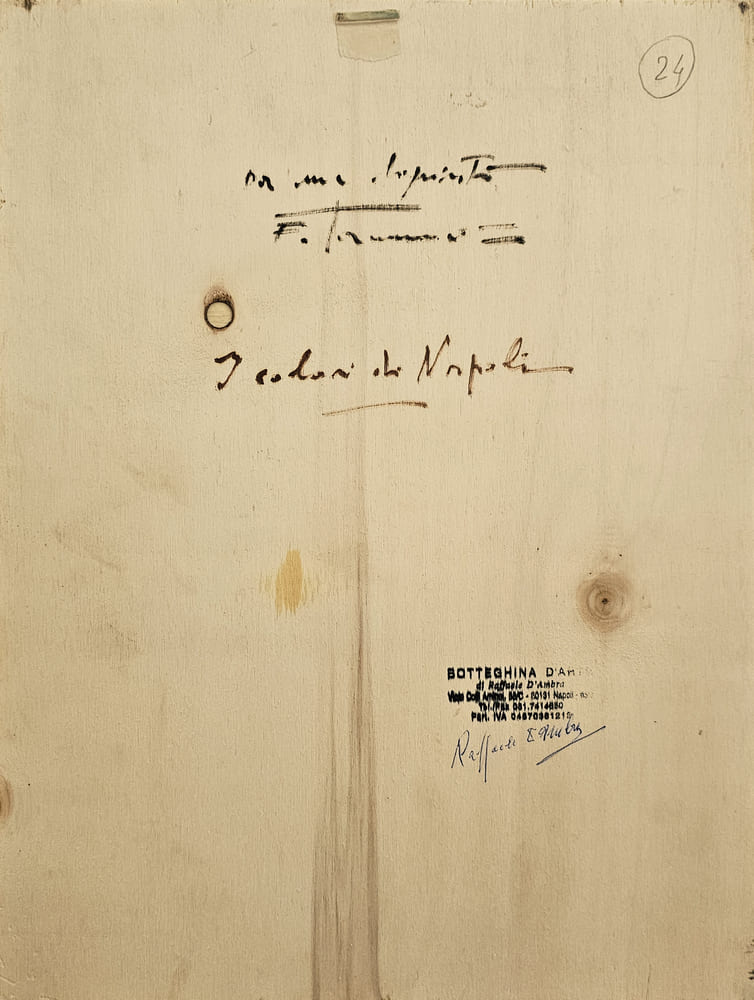 24
da me dipinto
F.
I colori di Napoli
BOTTEGHINA D'AR
di Raffaele D'Ambra
Viale Colli Aminei, - 80131 Napoli
Tel./Fax 081.7414650
Part. IVA
Raffaele D'Ambra